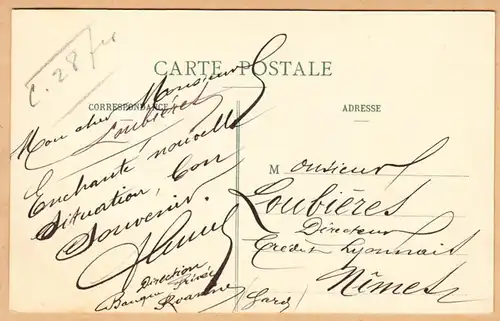 CARTE POSTALE
CORRESPONDANCE
ADRESSE
Mon cher Monsieur
Loubières
Enchanté nouvelle
Situation, bon
Souvenir.
Direction
Banque Privée
Roanne
Monsieur
Loubières
Directeur
Crédit Lyonnais
Nîmes
(Gard)